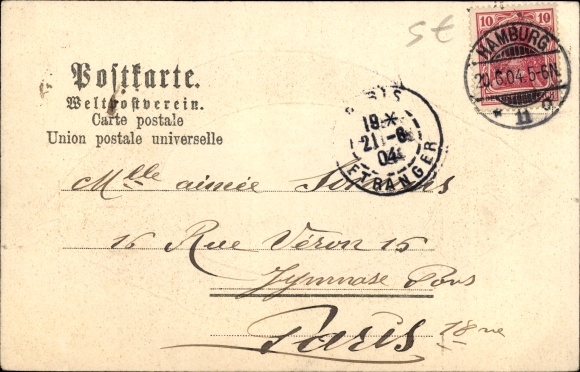 st
10 10
HAMBURG
20.6.04.5-6N.
* 11 d
Postkarte.
Weltpostverein.
Carte postale
Union postale universelle
PARIS
19*
21-6
04
ETRANGER
Mlle aimée
16 Rue Véron 16
Gymnase Pons
Paris 18me